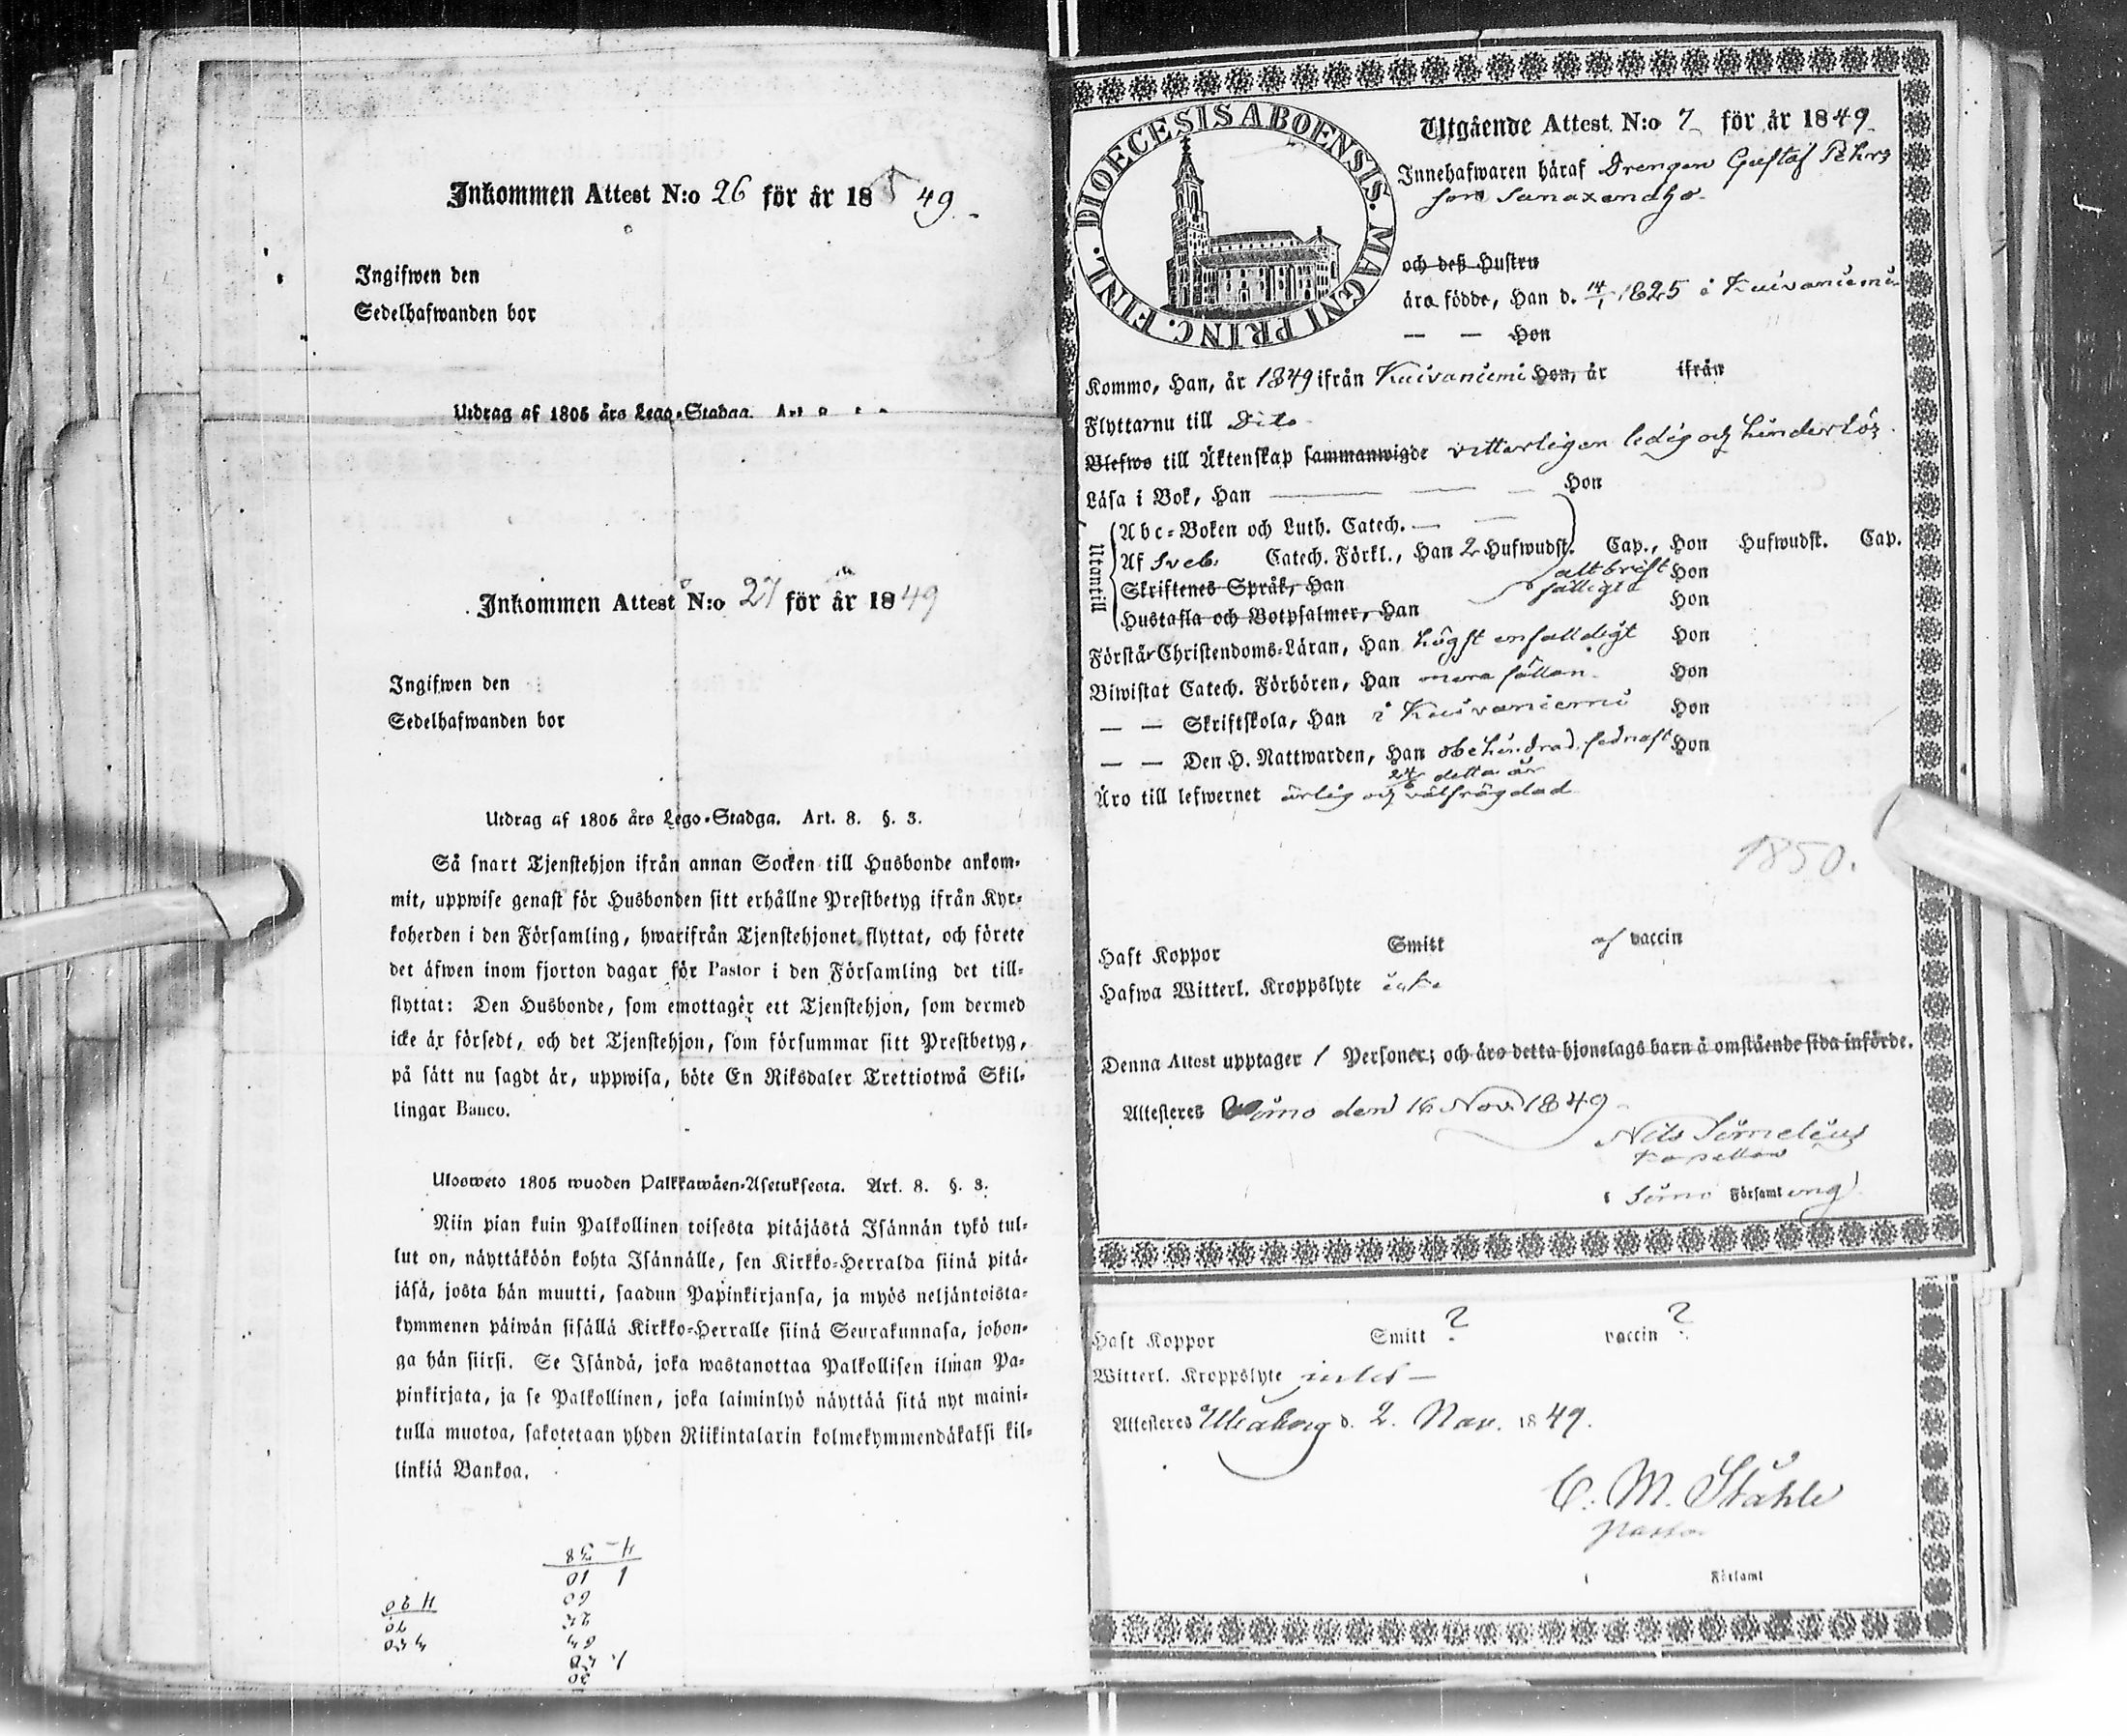 Inkommen Attest N:o 26 för år 18 49.
Ingifwen den
Sedelhafwanden bor
Utdrag af 1805 års Lego-Stadga. Art. 8. §. 3.
Inkommen Attest N:o 27 för år 1849
Ingifwen den
Sedelhafwanden bor
Utdrag af 1805 års Lego-Stadga. Art. 8. §. 3.
Så snart Tjenstehjon ifrån annan Socken till Husbonde ankom-
mit, uppwise genast för Husbonden sitt erhållne Prestbetyg ifrån Kyr-
koherden i den Församling, hwarifrån Tjenstehjonet flyttat, och förete
det äfwen inom fjorton dagar för Pastor i den Församling det till-
flyttat: Den Husbonde, som emottager ett Tjenstehjon, som dermed
icke är försedt, och det Tjenstehjon, som försummar sitt Prestbetyg,
på sätt nu sagdt är, uppwisa, böte En Riksdaler Trettiotwå Skil-
lingar Banco.
Ulosweto 1805 wuoden Palkkawäen-Asetuksesta. Art. 8. §. 3.
Niin pian kuin Palkollinen toisesta pitäjästä Isännän tykö tul-
lut on, näyttäköön kohta Isännälle, sen Kirkko-Herralda siinä pitä-
jäsä, josta hän muutti, saadun Papinkirjansa, ja myös neljäntoista-
kymmenen päiwän sisällä Kirkko-Herralle siinä Seurakunnasa, johon-
ga hän siirsi. Se Isändä, joka wastanottaa Palkollisen ilman Pa-
pinkirjata, ja se Palkollinen, joka laiminlyö näyttää sitä nyt maini-
tulla muotoa, sakotetaan yhden Riikintalarin kolmekymmendäkaksi kil-
linkiä Bankoa.
DIOECESIS ABOENSIS. MAGNI PRINC. FINL.
Utgående Attest N:o 7 för år 1849
Innehafwaren häraf Drengen Gustaf Pehrs
son
och deß Hustru
äro födde, Han d. 14/1 1825 i Kuivaniemi
— — Hon
Kommo, Han, år 1849 ifrån Kuivaniemi Hon, år ifrån
Flyttar nu till Dito
Blefwo till Äktenskap sammanwigde vitterligen ledig och hinderlös.
Läsa i Bok, Han — — — Hon
Utantill
Abc-Boken och Luth. Catech. — —
Af Sveb. Catech. Förkl., Han 2 Hufwudst. Cap., Hon Hufwudst. Cap.
Skriftenes Språk, Han allt brist Hon
Hustafla och Botpsalmer, Han fälligt Hon
Förstår Christendoms-Läran, Han högst enfalldigt Hon
Biwistat Catech. Förhören, Han mera sällan Hon
— — Skriftskola, Han i Kuivaniemi Hon
— — Den H. Nattwarden, Han obehindrad. sednast Hon
detta år
Äro till lefwernet ärlig och välfrägdad
1850.
Haft Koppor Smitt af vaccin
Hafwa Witterl. Kroppslyte icke
Denna Attest upptager 1 Personer; och äro detta hjonelags barn å omstående sida införde.
Attesteres Simo den 16 Nov. 1849
Nils
Kapellan
i Simo Församling
Haft Koppor Smitt ? vaccin ?
Witterl. Kroppslyte intet —
Attesteres Uleåborg d. 2. Nov. 1849.
C. M. Ståhle
Pastor
i Församl